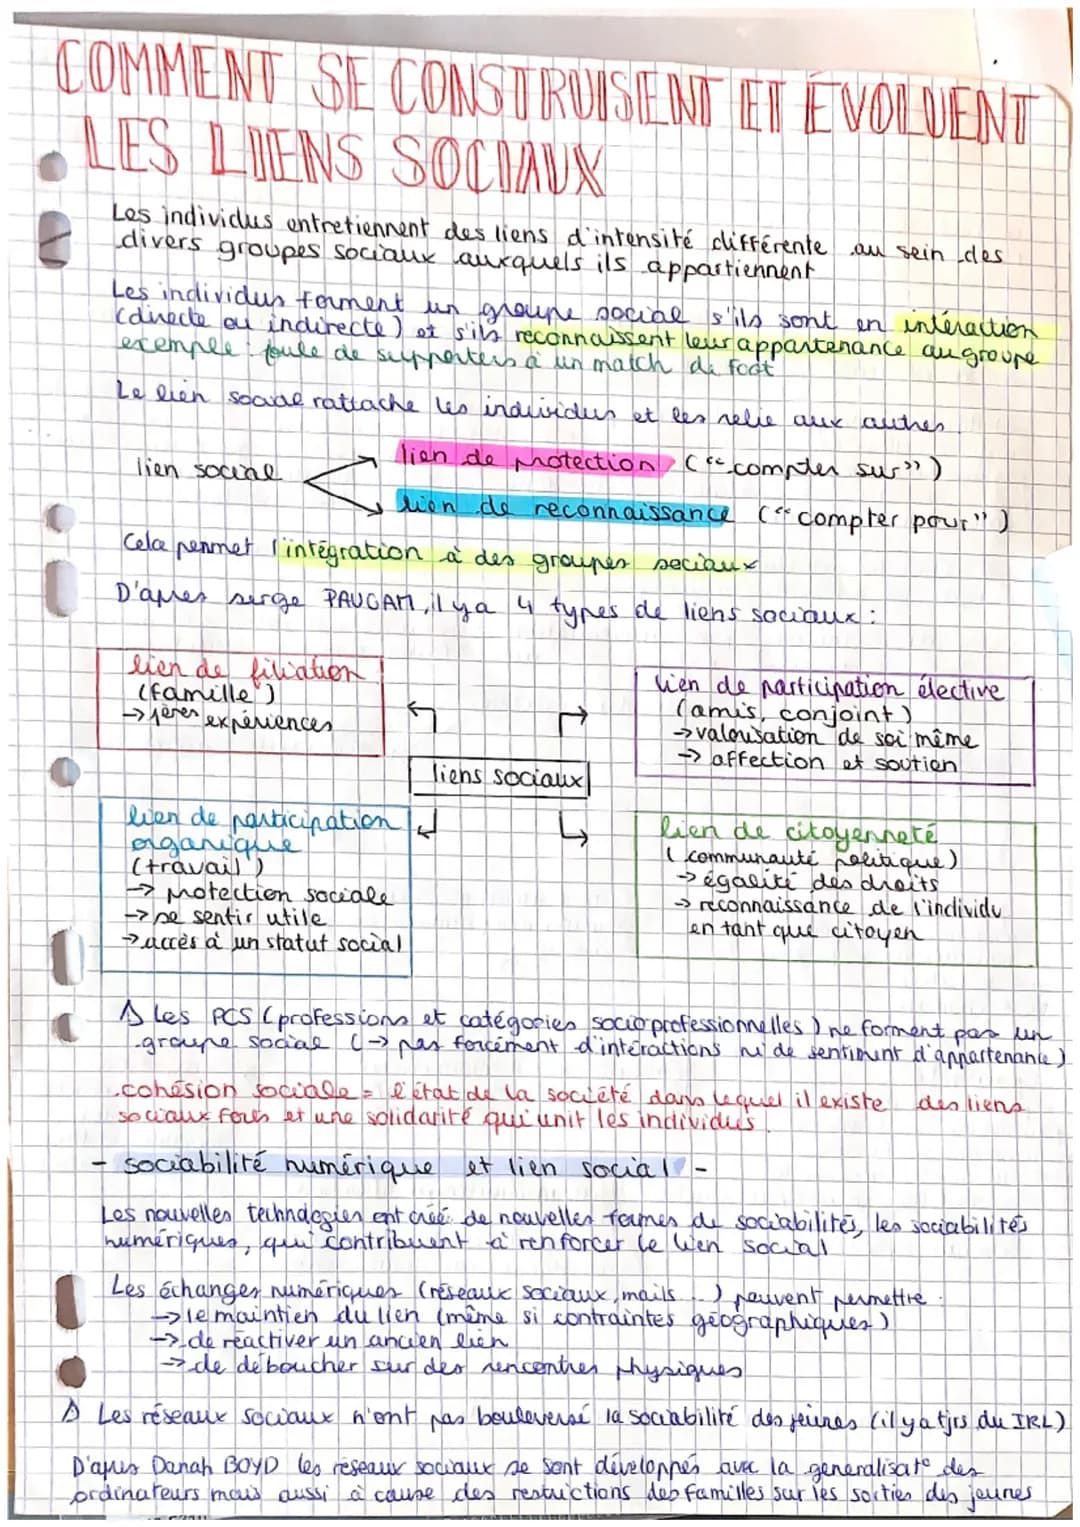 COMMENT SE CONSTRUISENT ET ÉVOLUENT
LES LIENS SOCIAUX
Les individus entretiennent des liens d'intensité différente au sein des
divers groupes sociaux auxquels ils appartiennent
Les individus forment un groupe social s'ils sont en intéraction
(directe ou indirecte) et s'ils reconnaissent leur appartenance au groupe
exemple : foule de supporters à un match de foot
Le lien social rattache les individus et les relie aux autres.
lien social
lien de protection ("compter sur")
lien de reconnaissance ("compter pour")
Cela permet l'intégration à des groupes sociaux
D'après serge PAUGAM, il y a 4 types de liens sociaux :
lien de filiation
(famille)
→ 1ères expériences
lien de participation élective
(amis, conjoint)
→ valorisation de soi même
→ affection et soutien
liens sociaux
lien de participation
organique
(travail)
→ protection sociale
→ se sentir utile
→ accès à un statut social
lien de citoyenneté
(communauté politique)
→ égalité des droits
→ reconnaissance de l'individu
en tant que citoyen
⚠ Les PCS (professions et catégories socioprofessionnelles) ne forment pas un
groupe social (→ pas forcément d'intéractions ni de sentiment d'appartenance)
cohésion sociale = l'état de la société dans lequel il existe des liens
sociaux forts et une solidarité qui unit les individus.
- sociabilité numérique et lien social -
Les nouvelles technologies ont créé de nouvelles formes de sociabilités, les sociabilités
numériques, qui contribuent à renforcer le lien social
Les échanges numériques (réseaux sociaux, mails ...) peuvent permettre :
→ le maintien du lien (même si contraintes géographiques)
→ de réactiver un ancien lien
→ de déboucher sur des rencontres physiques
⚠ Les réseaux sociaux n'ont pas bouleversé la sociabilité des jeunes (il y a tjrs du IRL)
D'après Danah BOYD les réseaux sociaux se sont développés avec la generalisat° des
ordinateurs mais aussi à cause des restrictions des familles sur les sorties des jeunes